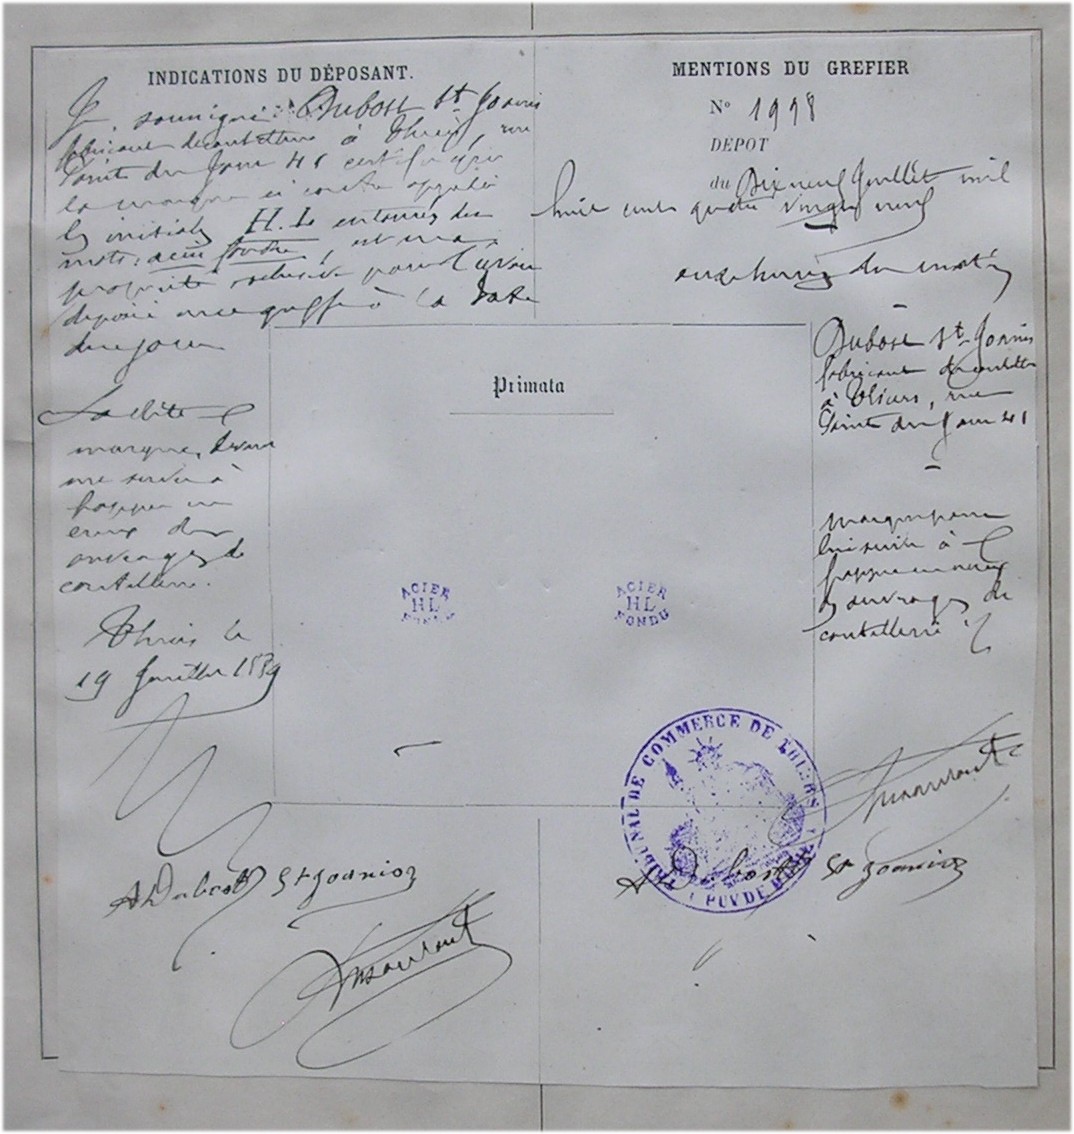 INDICATIONS DU DÉPOSANT.
Je soussigné Dubost St Joanis
fabricant de coutellerie à Thiers, rue
Pointe du Jour 41 certifie que
la marque ci contre appelée
les initiales H. L entourées des
mots: acier fondu, est ma
propriété exclusive pour l'avoir
déposée au greffe à la date
de ce jour
La dite
marque, devra
me servir à
frapper en
creux des
ouvrages de
coutellerie.
Thiers le
19 Juillet 1889
A Dubost St Joanis
MENTIONS DU GREFIER
No 1998
DÉPOT
du Dix neuf Juillet mil
huit cent quatre vingt neuf
onze heures du matin
Dubost St Joanis
fabricant de coutellerie
à Thiers, rue
Pointe du Jour 41
marque pour
lui servir à
frapper en creux
les ouvrages de
coutellerie
Primata
ACIER
HL
FONDU
ACIER
HL
FONDU
TRIBUNAL DE COMMERCE DE THIERS
PUY DE DOME
A Dubost St Joanis